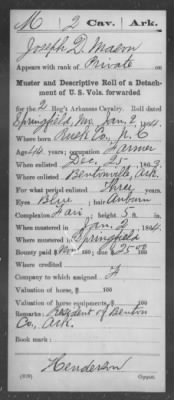 M 2 Cav. Ark.
Joseph D. Mason
Appears with rank of Private on
Muster and Descriptive Roll of a Detach-
ment of U. S. Vols. forwarded
for the 2 Reg't Arkansas Cavalry. Roll dated
Springfield, Mo. Jan. 2, 1864.
Where born Co., N. C.
Age 44 years; occupation Farmer
When enlisted Dec. 25, 1863.
Where enlisted Bentonville, Ark.
For what period enlisted Three years.
Eyes Blue; hair Auburn
Complexion Fair; height 5 ft. in.
When mustered in Jan. 2, 1864.
Where mustered in Springfield
Bounty paid $ 100; due $ 100
Where credited
Company to which assigned
Valuation of horse, $ 100
Valuation of horse equipments, $ 100
Remarks: Resident of Benton
Co., Ark.
Book mark:
Henderson
Copyist.